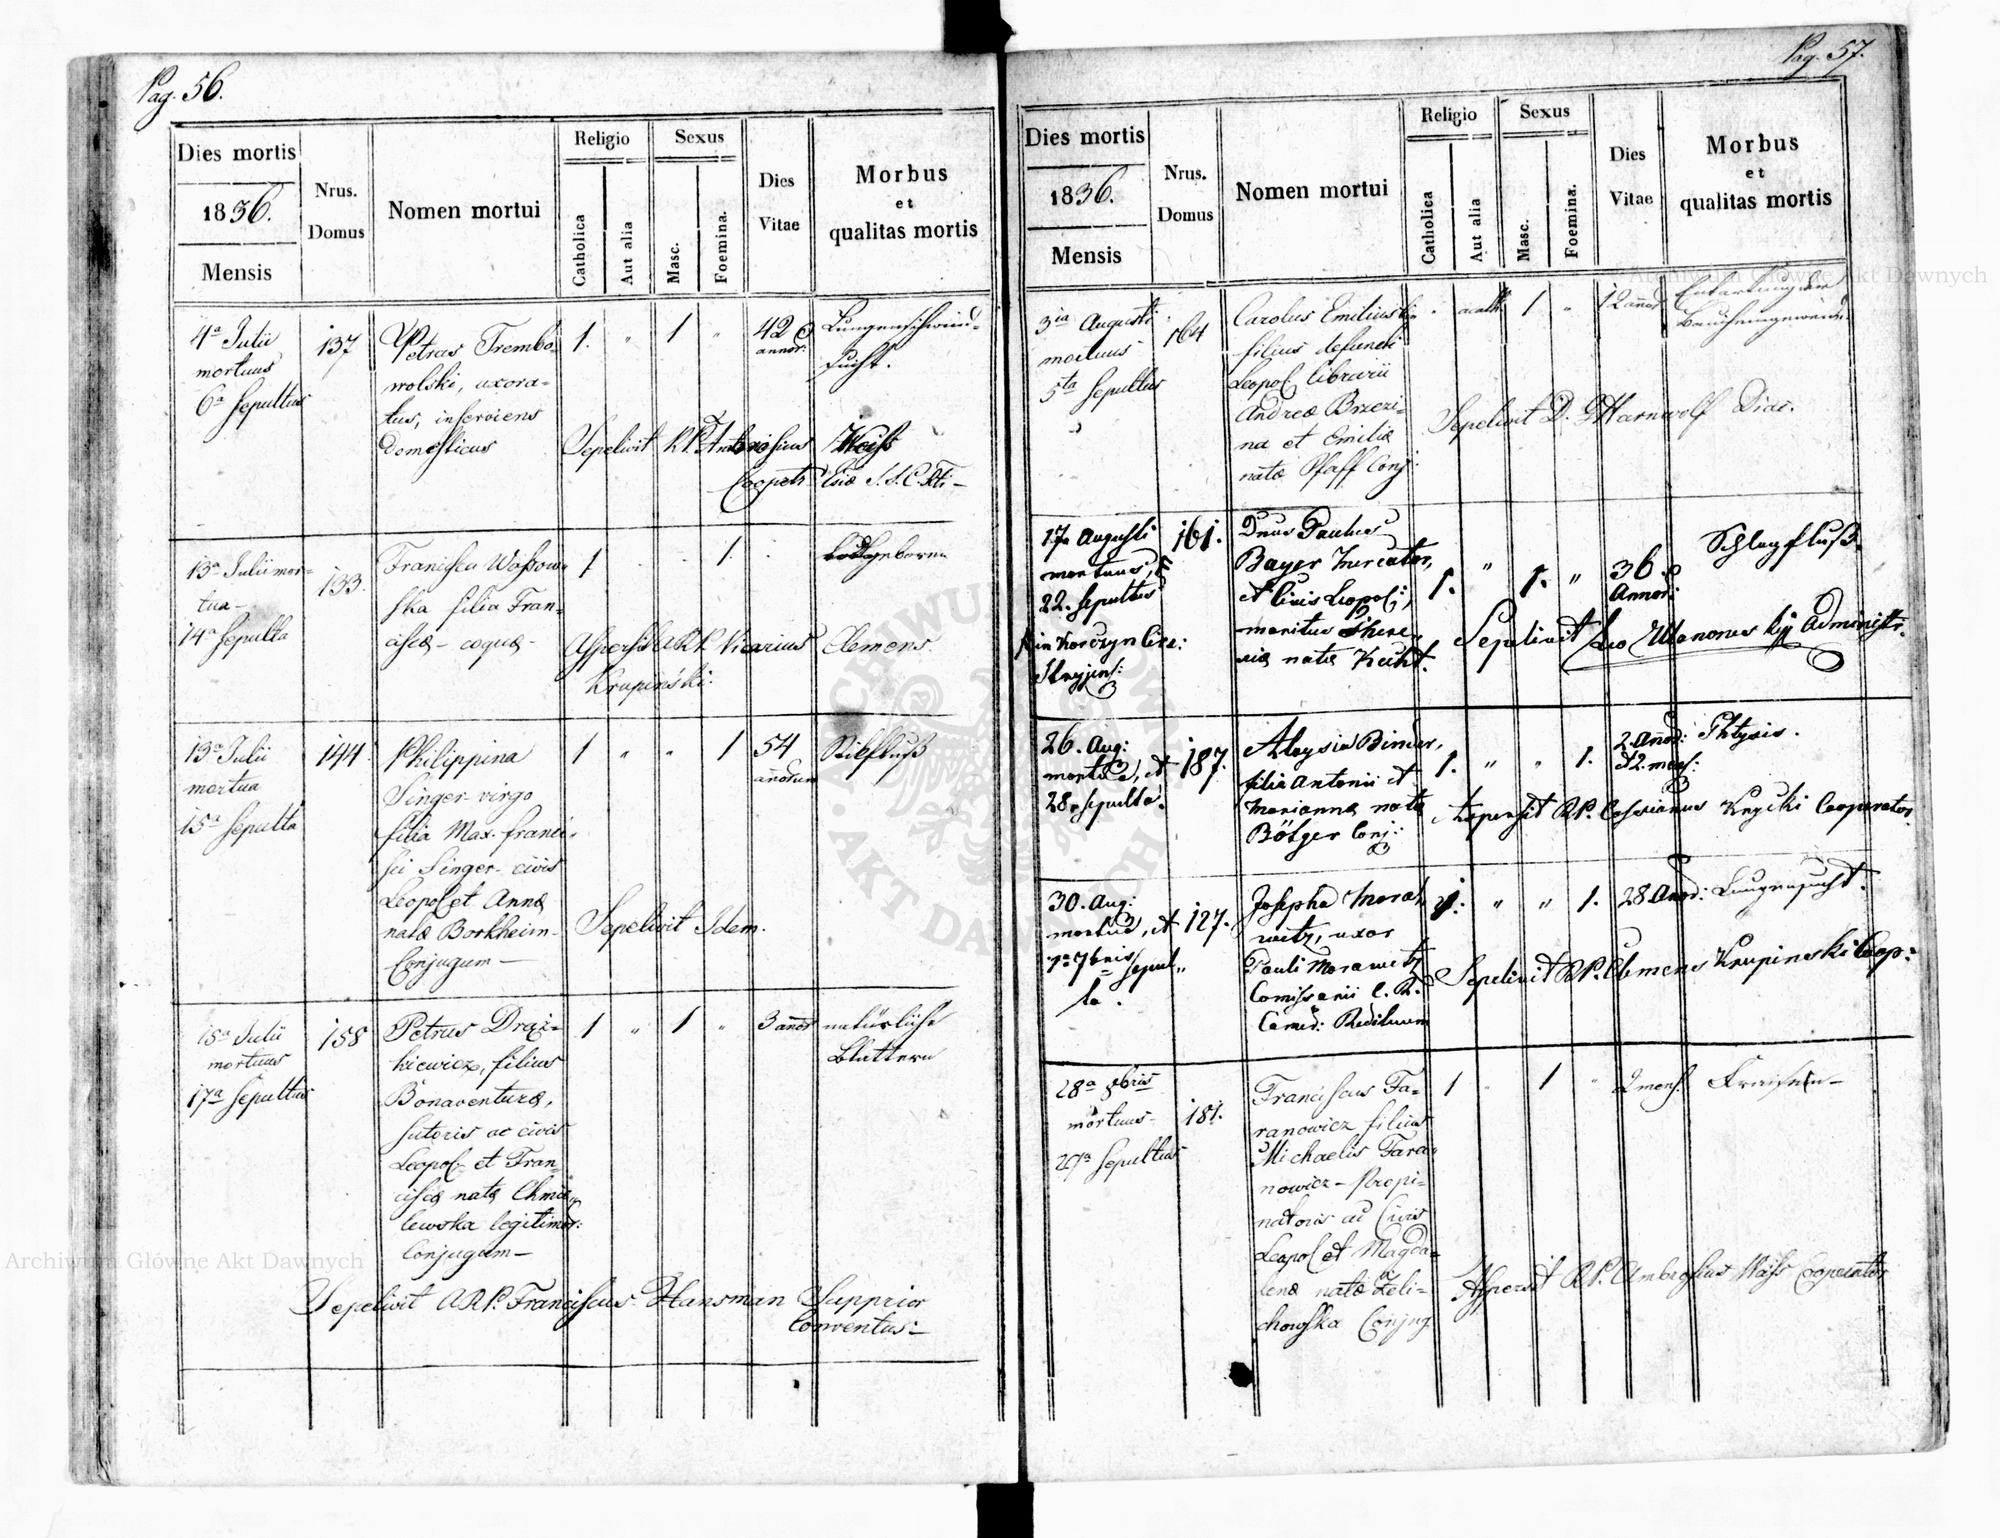 Pag. 56.
Dies mortis
1836.
Mensis
Nrus.
Domus
Nomen mortui
Religio
Catholica
Aut alia
Sexus
Masc.
Foemina.
Dies
Vitae
Morbus
et
qualitas mortis
4a Julii
mortuus
6a Sepultus
137
Petrus Trembo-
wolski, uxora-
tus, inserviens
domesticus
1. " 1 "
42
annor:
Lungenschwind-
sucht.
Sepelivit R.P. Ambrosius Weiss
Cooperat:
13a Julii mor-
tua
14a Sepulta
133.
Francisca Wassow-
ska filia Fran-
ciscæ coquæ
1 1.
Aspersit A.R.P. Vicarius Clemens
Krupiński.
13a Julii
mortua
15a Sepulta
144.
Philippina
Singer virgo
filia Max. Franci-
sci Singer civis
Leopol et Annæ
natæ Borkheim
Conjugum
1 " " 1
54
annorum
Stikfluß
Sepelivit Idem.
15a Julii
mortuus
17a Sepultus
158
Petrus Drzi-
kiewicz, filius
Bonaventuræ,
sutoris ac civis
Leopol et Fran-
ciscæ natæ Chmie-
lewska legitimor:
Conjugum
1 " 1 "
3 annor
natürliche
Blattern
Sepelivit A.R.P. Franciscus Hansman Supprior
Conventus
Pag. 57.
Dies mortis
1836.
Mensis
Nrus.
Domus
Nomen mortui
Religio
Catholica
Aut alia
Sexus
Masc.
Foemina.
Dies
Vitae
Morbus
et
qualitas mortis
3ia Augusti
mortuus
5ta Sepultus
164
Carolus Emilius
filius defuncti
Leopol. librarii
Andreæ Brzezi-
na et Emiliæ
natæ Pfaff Conj:
" acath 1 "
12 annor
Sepelivit D. Diac.
17a Augusti
mortuus,
22. Sepultus
in Korczyn Circ:
Stryjens:
161.
Dnus Paulus
Bayer Mercator,
et Civis Leopol:,
maritus There-
siæ natæ Kecht.
1. " 1. "
36
Annor:
Schlagfluß.
Sepelivit Leo Administr.
26. Aug:
mortua, et
28. Sepulta.
187.
Aloysia Binder,
filia Antonii et
Mariannæ natæ
Bötger Conj:
1. " " 1.
2 Annor:
et 2. mens:
Phtysis.
Aspersit R.P. Cassianus Knycki Cooperator.
30. Aug:
mortua, et
1a 7bris Sepul-
ta.
127.
Josepha Mora-
wetz, uxor
Pauli Morawetz
Comissarii C. R.
Camer: Redituum
1. " " 1.
28 Annor:
Lungensucht.
Sepelivit R.P. Clemens Krupinski Coop:
28a 8bris
mortuus
29a Sepultus
181.
Franciscus Ta-
ranowicz filius
Michaelis Tara-
nowicz propi-
natoris ac Civis
Leopol et Magda-
lenæ natæ Zeli-
chowska Conjug
1 " 1 "
2 mens.
Fraisen
Aspersit R.P. Ambrosius Waiss Cooperator
Archiwum Główne Akt Dawnych
Archiwum Główne Akt Dawnych